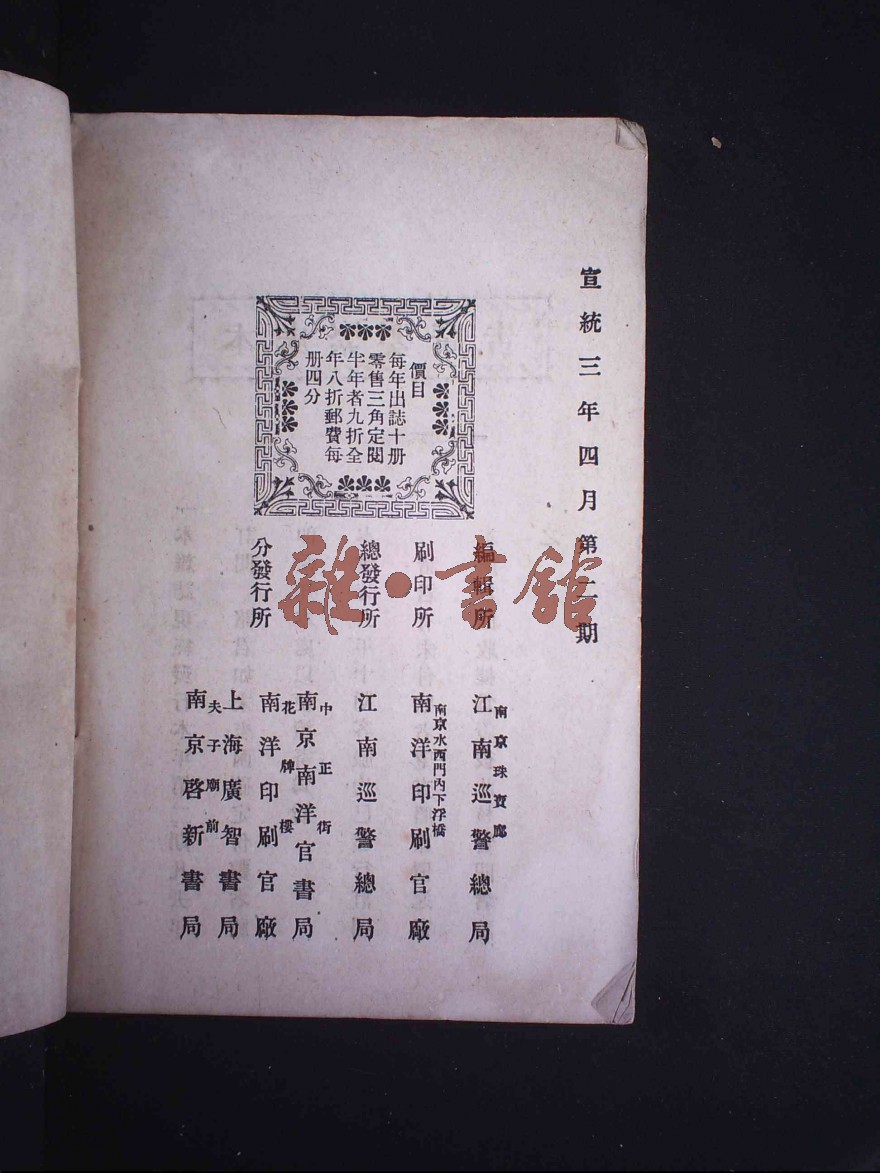 宣統三年四月第二期
價目
每年出誌十册
零售三角定閱
半年者九折全
年八折郵費每
册四分
編輯所
南京珠寶廊
江南巡警總局
刷印所
南京水西門內下浮橋
南洋印刷官廠
總發行所
江南巡警總局
分發行所
中正街
南京南洋官書局
花牌樓
南洋印刷官廠
上海廣智書局
夫子廟前
南京啓新書局
雜·書舘